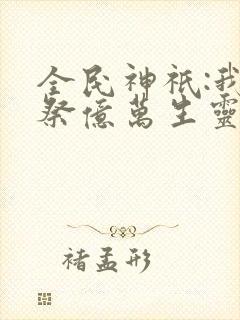 全民神祇:我
祭億萬生靈
褚孟形